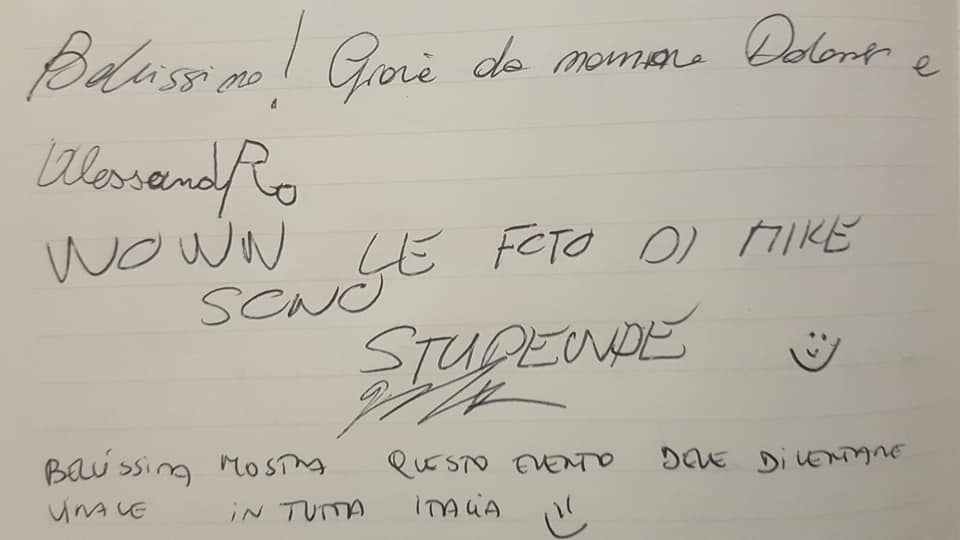 Bellissimo! Gioie da mamma Dolores e
AlessandRo
WOWW LE FOTO DI MIKE
SONO
STUPENDE
BELLISSIMA MOSTRA QUESTO EVENTO DEVE DIVENTARE
VIRALE IN TUTTA ITALIA